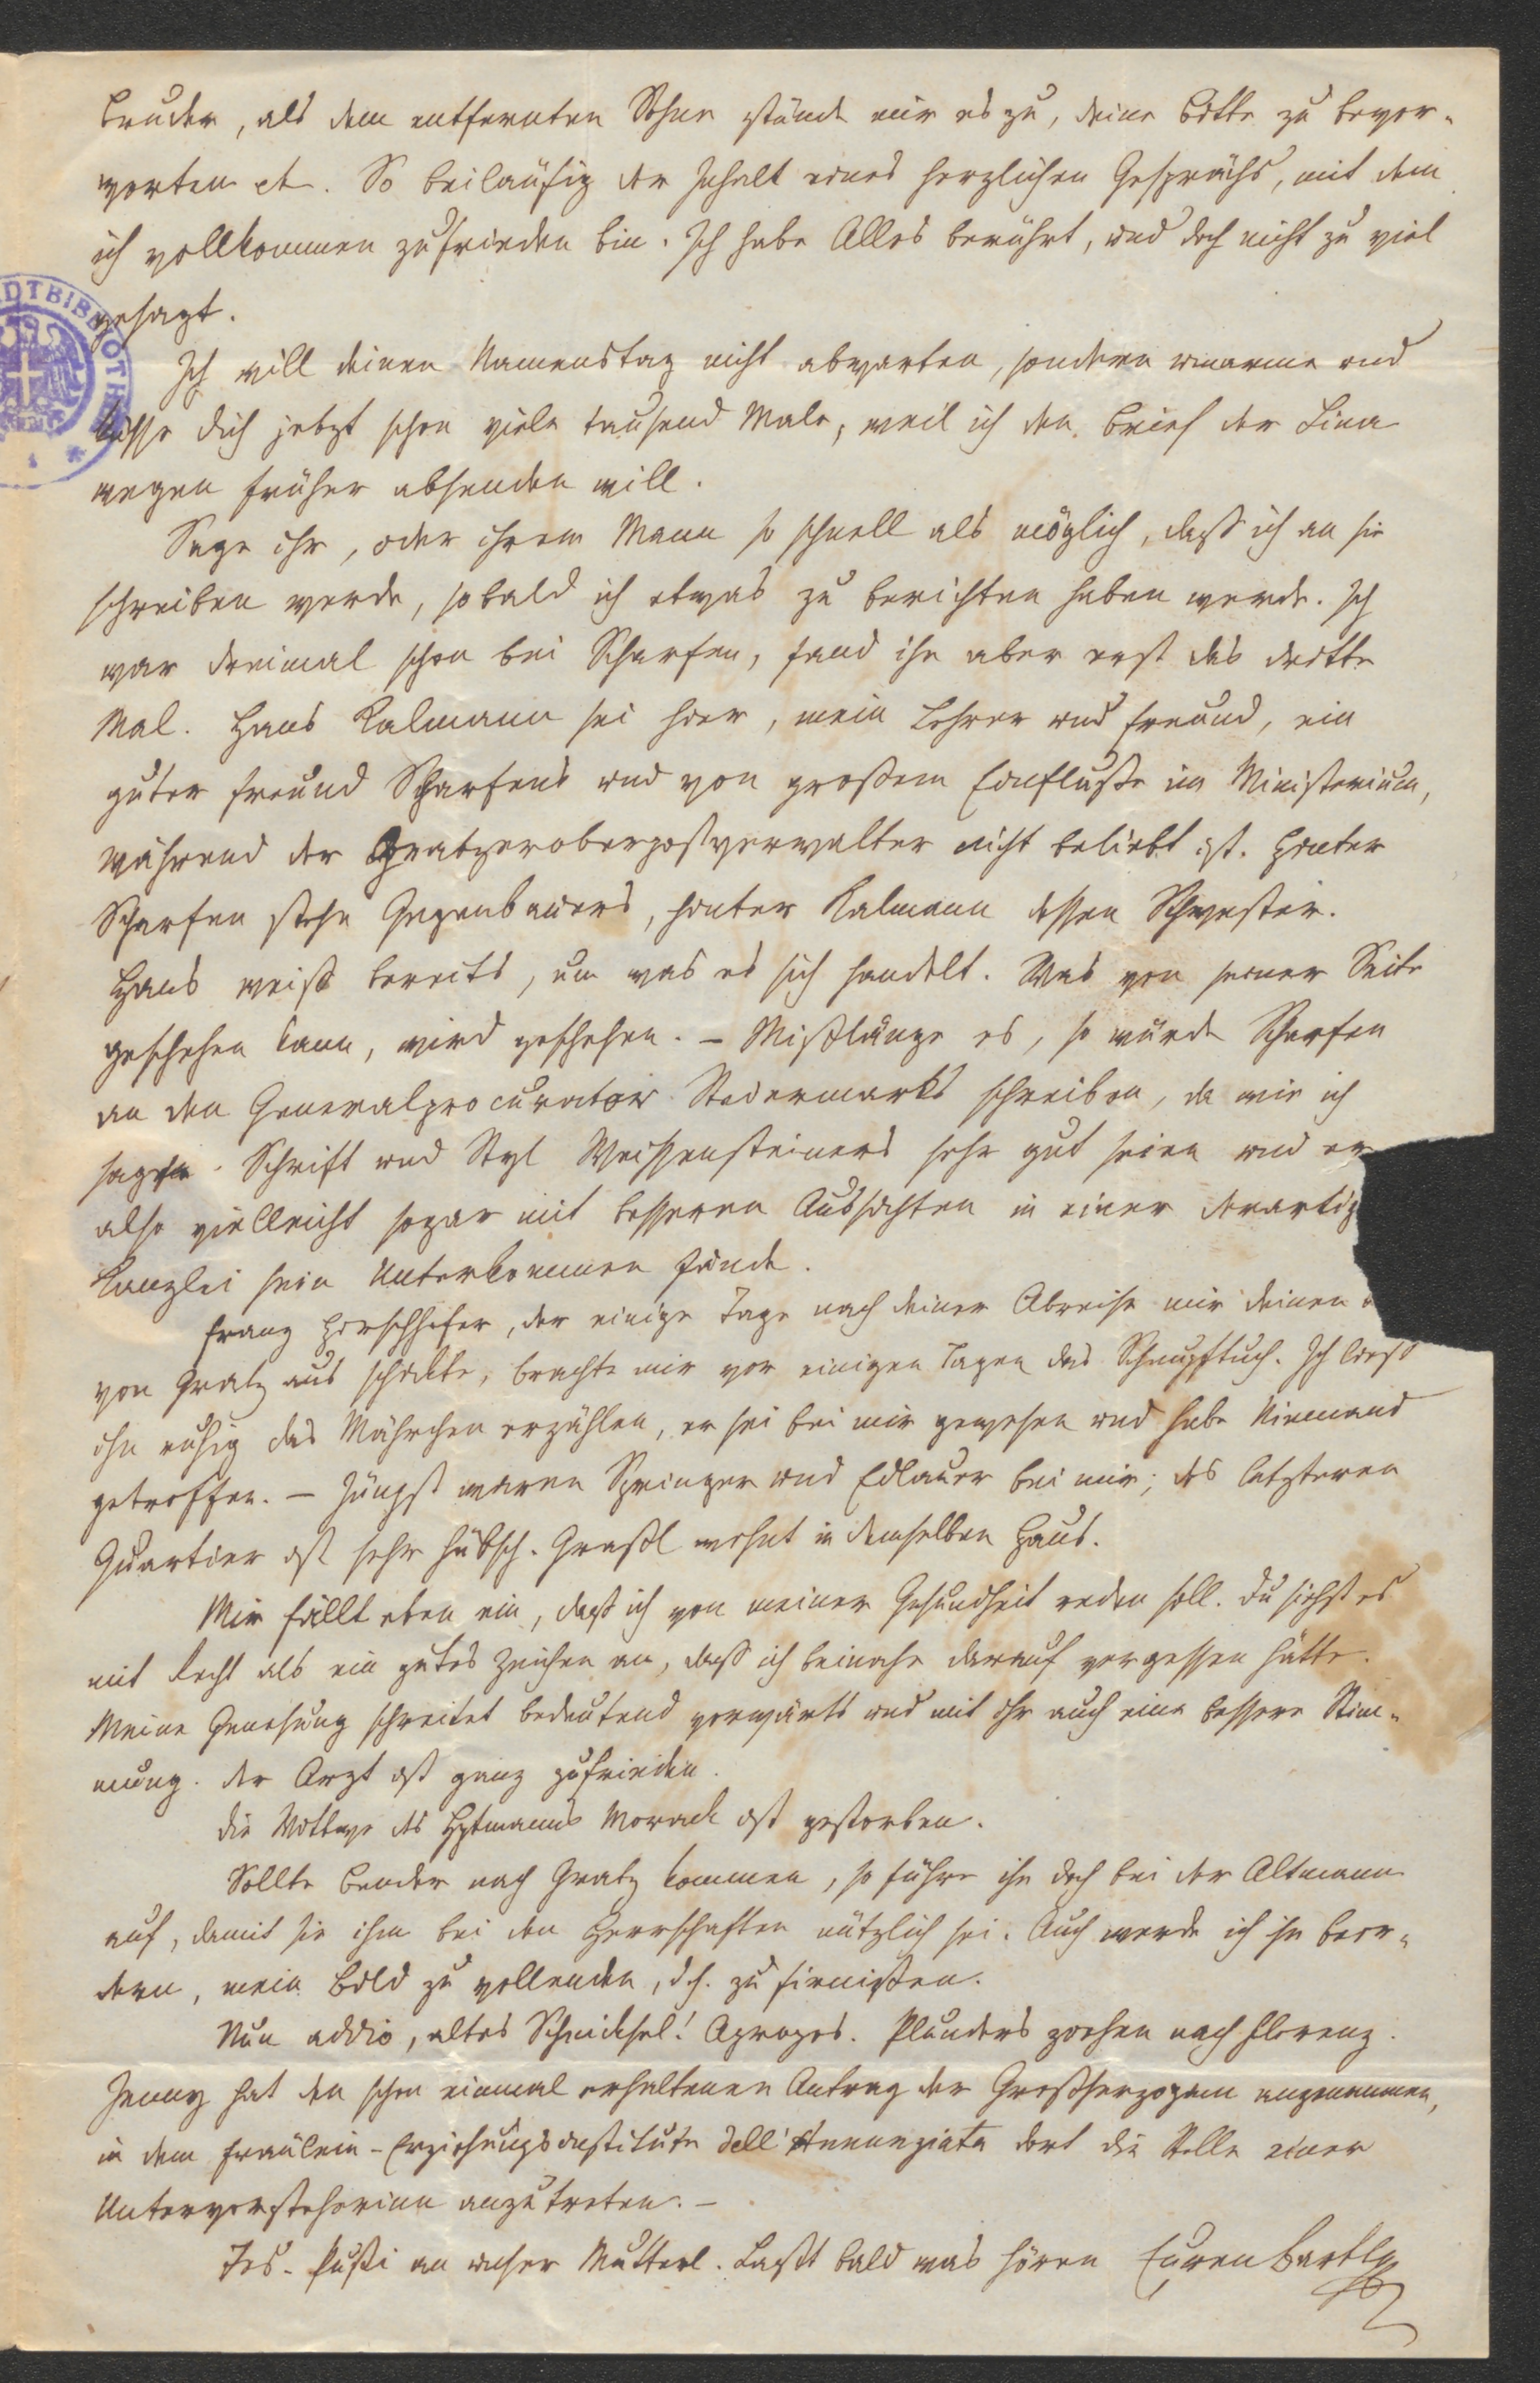 Bruder, als dem entfernten Sohne stünde mir es zu, deine Bitte zu bevor-
worten etc. So beiläufig der Inhalt eines herzlichen Gesprächs, mit dem
ich vollkommen zufrieden bin. Ich habe Alles berührt, und doch nicht zu viel
gesagt.
Ich will deinen Namenstag nicht abwarten, sondern umarme und
küsse dich jetzt schon viele tausend Male, weil ich den Brief der Lina
wegen früher absenden will.
Sage ihr, oder ihrem Mann so schnell als möglich, daß ich an sie
schreiben werde, sobald ich etwas zu berichten haben werde. Ich
war dreimal schon bei Scharfen, fand ihn aber erst das dritte
Mal. Hans Kalmann sei hier, mein Lehrer und Freund, ein
guter Freund Scharfens und von großem Einfluße im Ministerium,
während der Gratzeroberpostverwalter nicht beliebt ist. Hinter
Scharfen stehe Gegenbauers, hinter Kalmann dessen Schwester.
Hans weiß bereits, um was es sich handelt. Was von seiner Seite
geschehen kann, wird geschehen. – Mißlänge es, so würde Scharfen
an den Generalprocurator Steiermarks schreiben, da wie ich
sagte Schrift und Styl Weissensteiners sehr gut seien und er
also vielleicht sogar mit besseren Aussichten in einer derartig
Kanzlei sein Unterkommen fände.
Franz Hirschhofer, der einige Tage nach deiner Abreise mir deinen
von Gratz aus schickte, brachte mir vor einigen Tagen das Schnupftuch. Ich ließ
ihn ruhig das Mährchen erzählen, er sei bei mir gewesen und habe Niemand
getroffen. – Jüngst waren Springer und Edlauer bei mir; des letzteren
Quartier ist sehr hübsch. Graßl wohnt in demselben Haus.
Mir fällt eben ein, daß ich von meiner Gesundheit reden soll. Du siehst es
mit Recht als ein gutes Zeichen an, daß ich beinahe darauf vergessen hätte.
Meine Genesung schreitet bedeutend vorwärts und mit ihr auch eine bessere Stim-
mung. Der Arzt ist ganz zufrieden.
Die des Hptmanns Morack ist gestorben.
Sollte Bender nach Gratz kommen, so führe ihn doch bei der Altmann
auf, damit sie ihm bei den Herrschaften nützlich sei. Auch werde ich ihn beor-
dern, mein Bild zu vollenden, d.h. zu firnißen.
Nun addio, altes Schnicksel! Apropos. Plunders ziehen nach Florenz.
Jenny hat den schon einmal erhaltenen Antrag der Großherzogin angenommen,
in dem Fräulein-Erziehungsinstitute dell' Annunziata dort die Stelle einer
Untervorsteherinn anzutreten. –
Jos. Pußi an unser Mutterl. Laßt bald was hören Euren Bartl